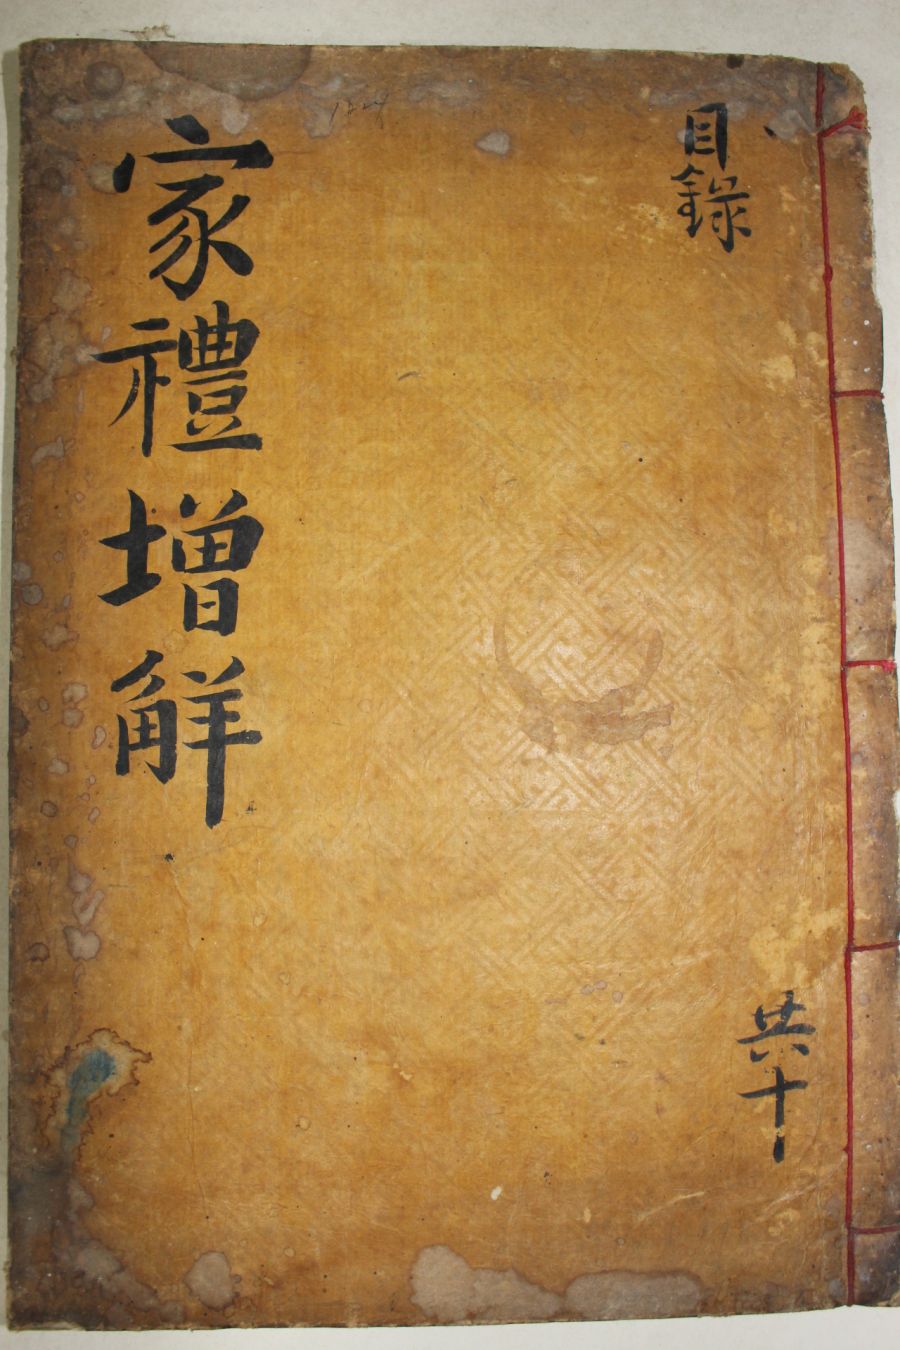 目錄
共十
家禮增解